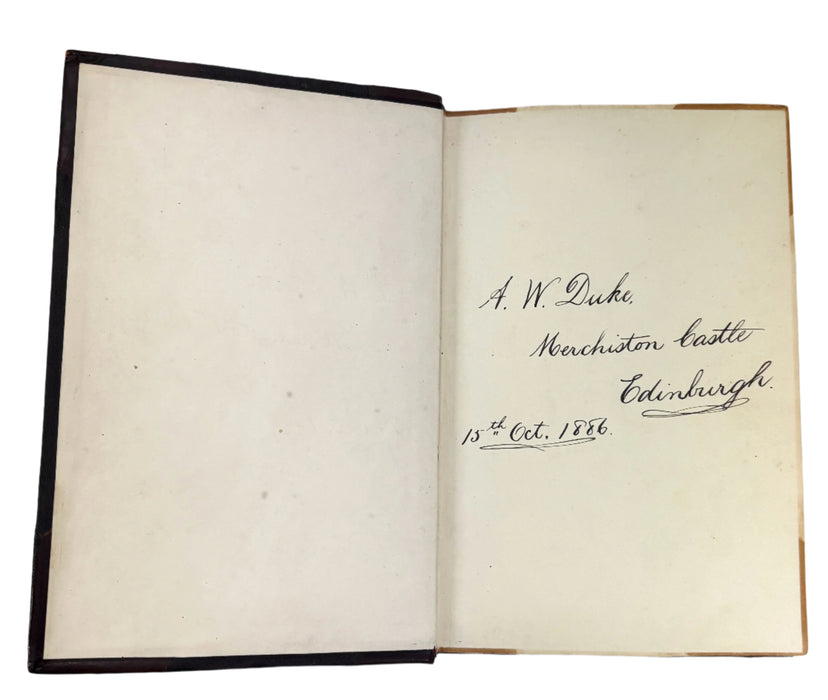 A. W. Duke.
Merchiston Castle
Edinburgh.
15th Oct. 1886.